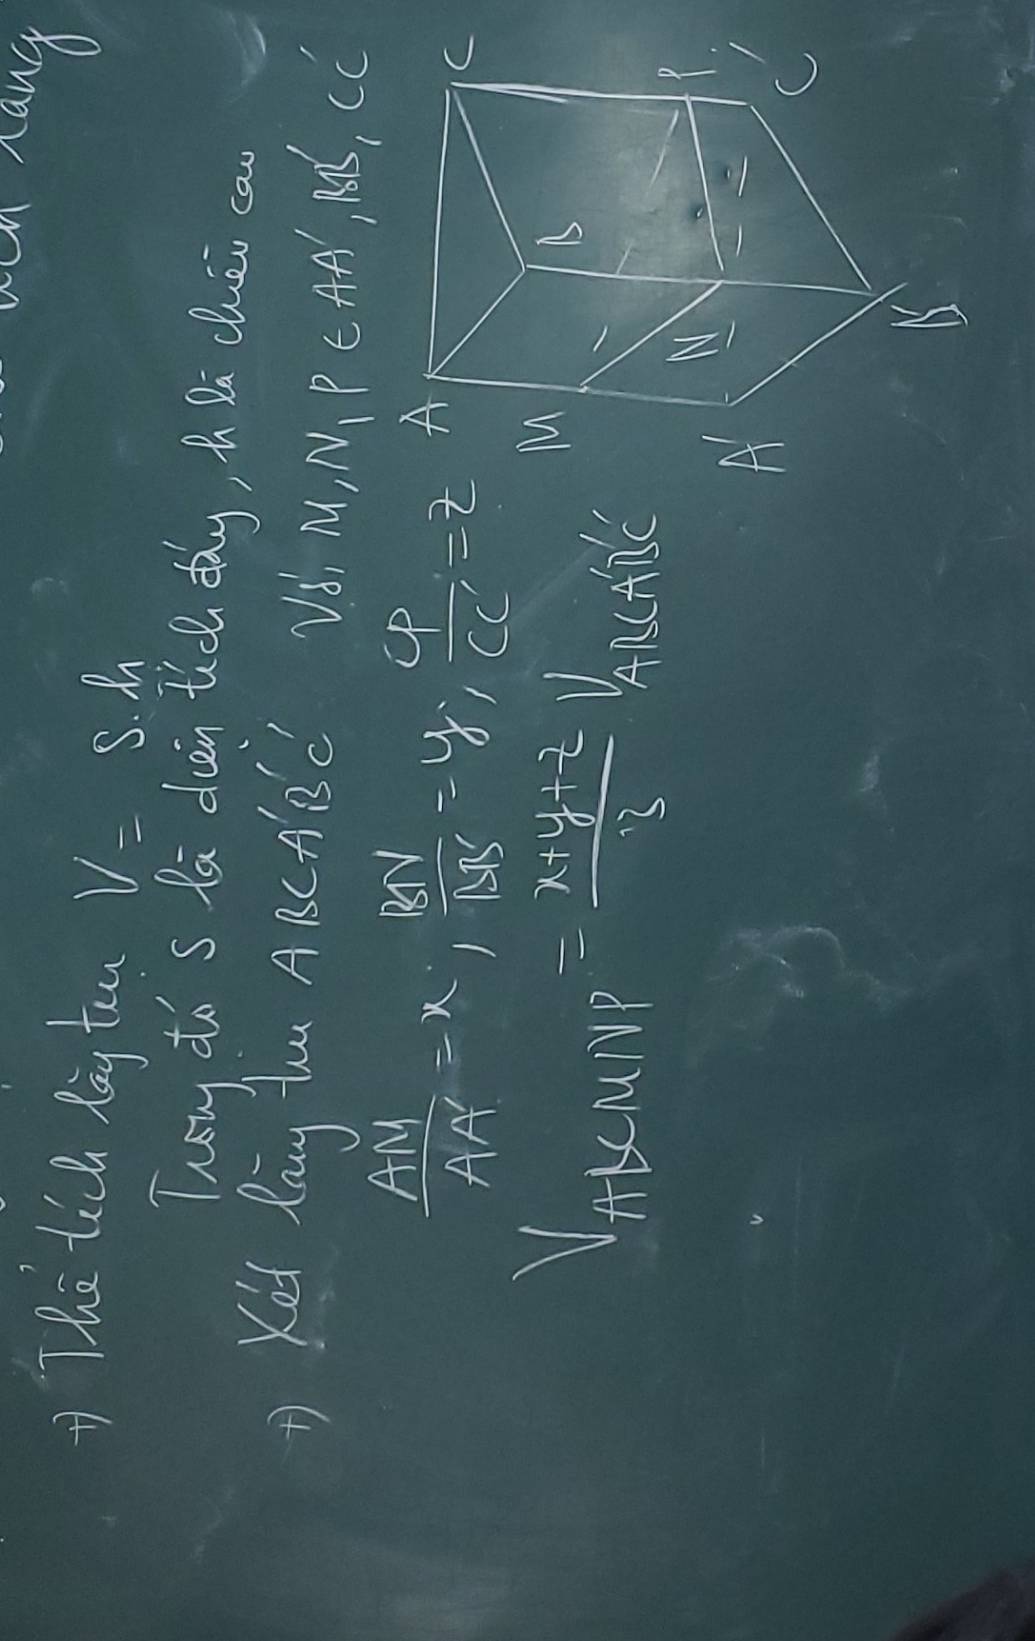 +) Thể tích lăng trụ V = S.h
Trong đó S là diện tích đáy, h là chiều cao
+) Xét lăng trụ ABCA'B'C' Với M, N, P ∈ AA', BB', CC'
AM/AA' = x, BN/BB' = y, CP/CC' = z
V ABCMNP = x+y+z/3 V ABCA'B'C'
A
B
C
M
N
P
A'
B'
C'